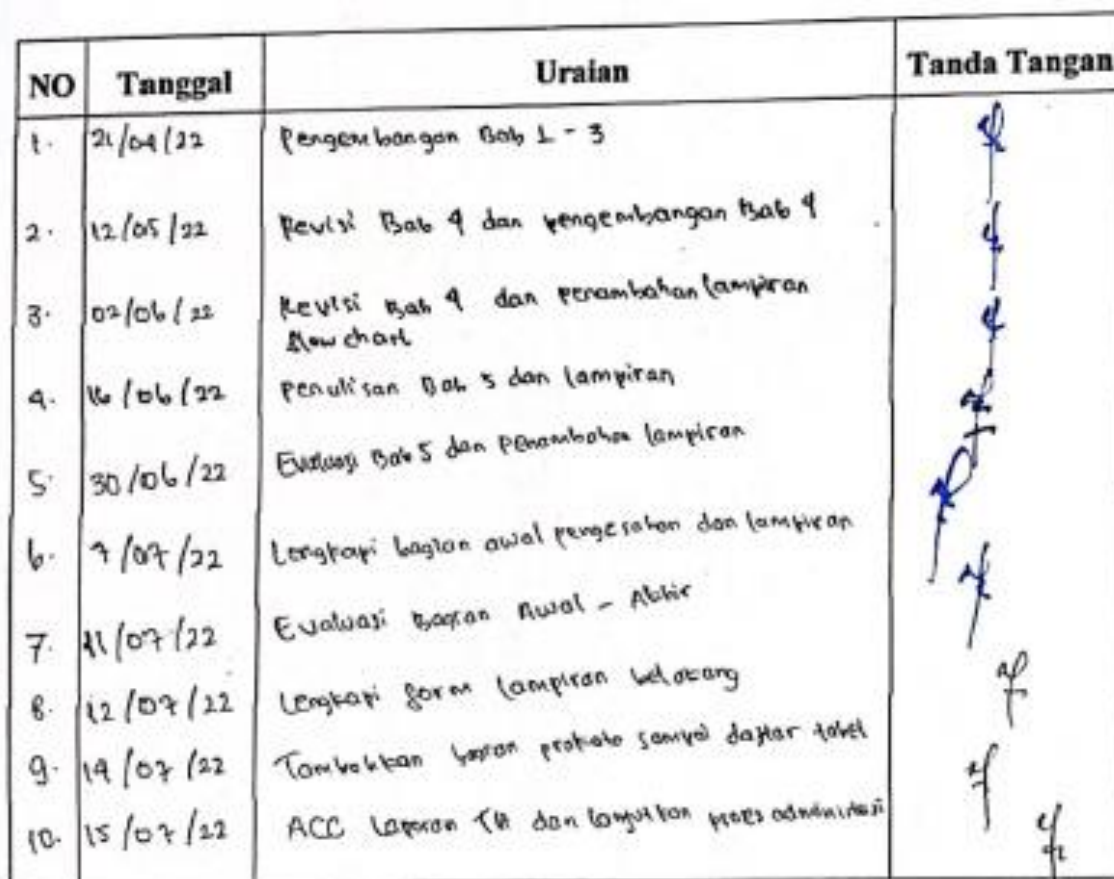 NO Tanggal Uraian Tanda Tangan
1. 21/04/22 Pengembangan Bab 1 - 3
2. 12/05/22 Revisi Bab 4 dan pengembangan Bab 4
3. 02/06/22 Revisi Bab 4 dan penambahan lampiran
flow chart
4. 16/06/22 Penulisan Bab 5 dan lampiran
5. 30/06/22 Evaluasi Bab 5 dan Penambahan lampiran
6. 7/07/22 Lengkapi bagian awal pengesahan dan lampiran
7. 11/07/22 Evaluasi Bagian Awal - Akhir
8. 12/07/22 Lengkapi form lampiran belakang
9. 14/07/22 Tambahkan bagian prakata sampai daftar tabel
10. 15/07/22 ACC Laporan TA dan lanjutkan proses administrasi